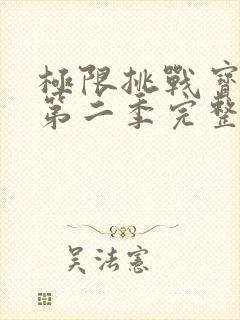 極限挑戰寶
第二季完整
吴法憲